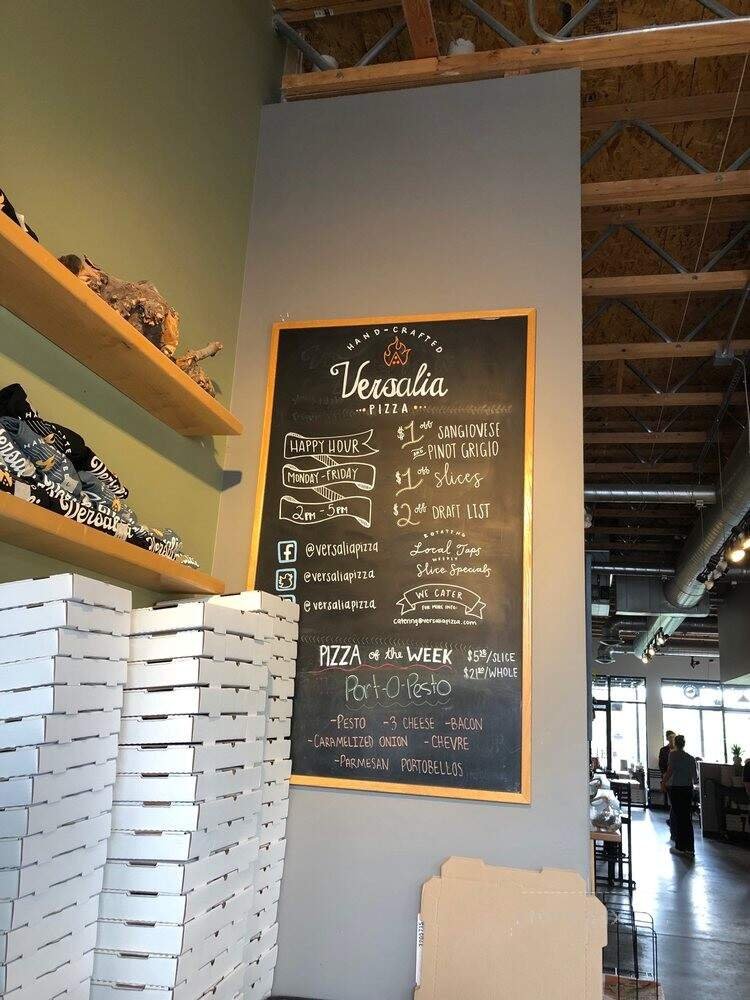 HAND-CRAFTED
Versalia
PIZZA
HAPPY HOUR
MONDAY-FRIDAY
2PM - 5PM
$1 off SANGIOVESE
PINOT GRIGIO
$1 off slices
$2 off DRAFT LIST
@versaliapizza
@versaliapizza
@versaliapizza
ROTATING
Local Taps
WEEKLY
Slice Specials
WE CATER
FOR MORE INFO:
catering@versaliapizza.com
PIZZA of the WEEK
/SLICE
/WHOLE
Port-O-Pesto
-PESTO -3 CHEESE -BACON
-CARAMELIZED ONION -CHEVRE
-PARMESAN PORTOBELLOS
Versalia